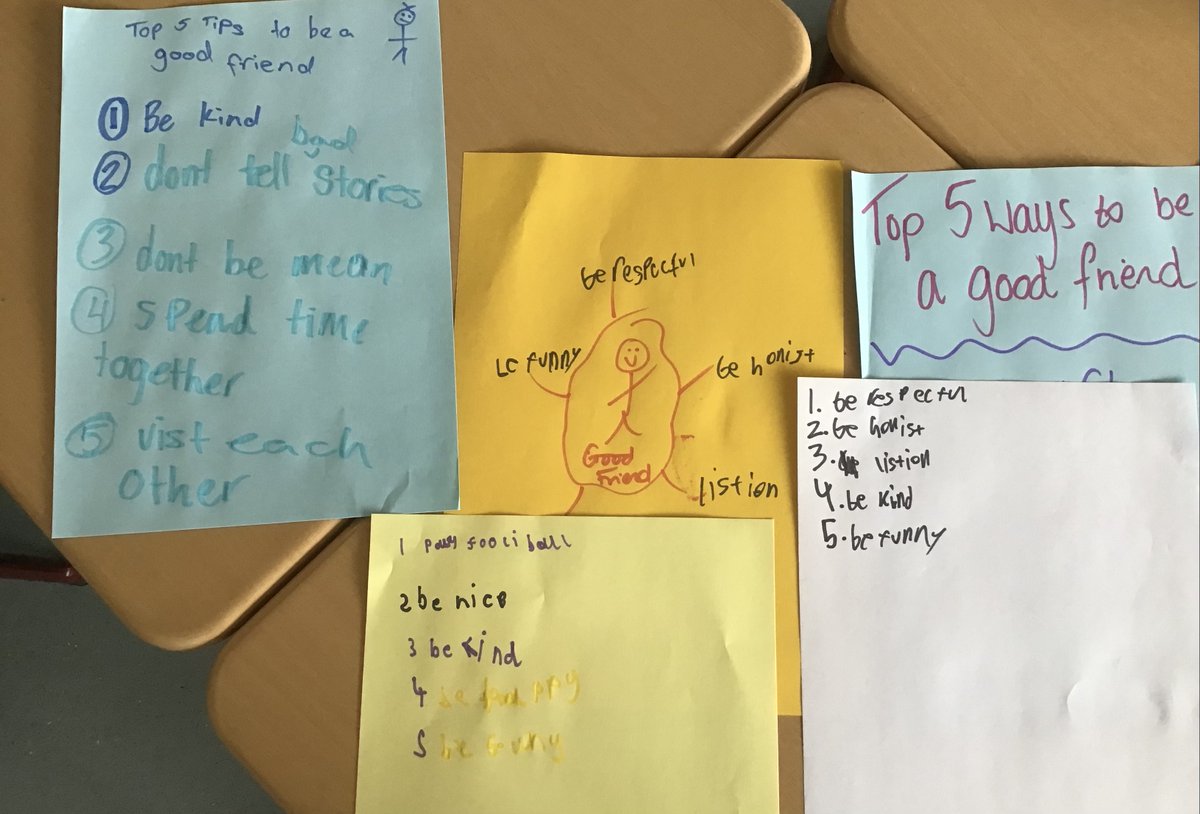 Top 5 Tips to be a
good friend
① Be kind
bad
② dont tell stories
③ dont be mean
④ spend time
together
⑤ vist each
other
be respectful
be funny
be honist
Good
Friend
listion
Top 5 ways to be
a good friend
1. be respectful
2. be honist
3. listion
4. be kind
5. be funny
1 football
2 be nice
3 be kind
4 be
5 be